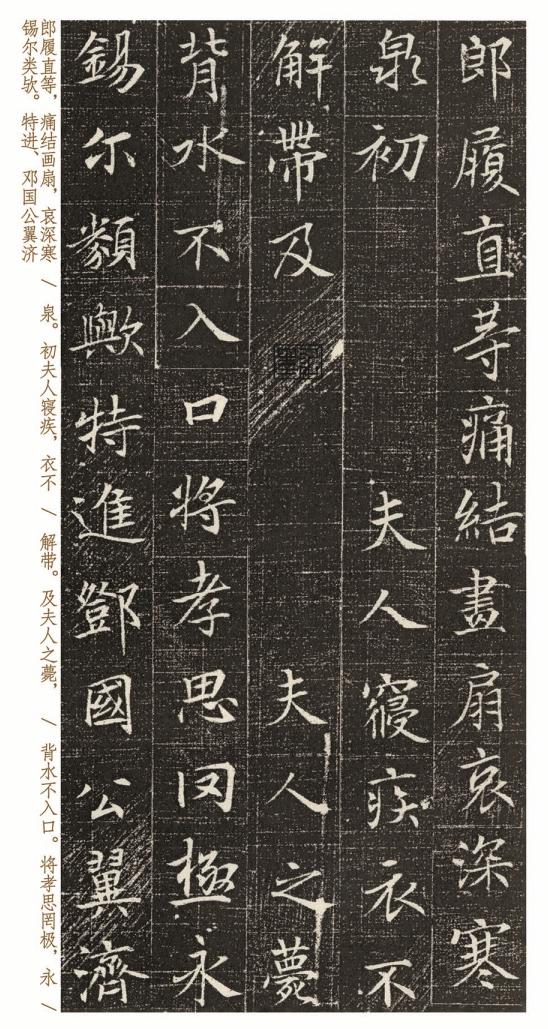 郎履直䓁痛結畫扇哀深寒
泉初夫人寑疾衣不
解帶及夫人之薨
背水不入口將孝思罔極永
錫尓類歟特進鄧國公翼濟
郎履直等，痛结画扇，哀深寒 / 泉。初夫人寝疾，衣不 / 解带。及夫人之薨， / 背水不入口。将孝思罔极，永 /
锡尔类欤。特进、邓国公翼济